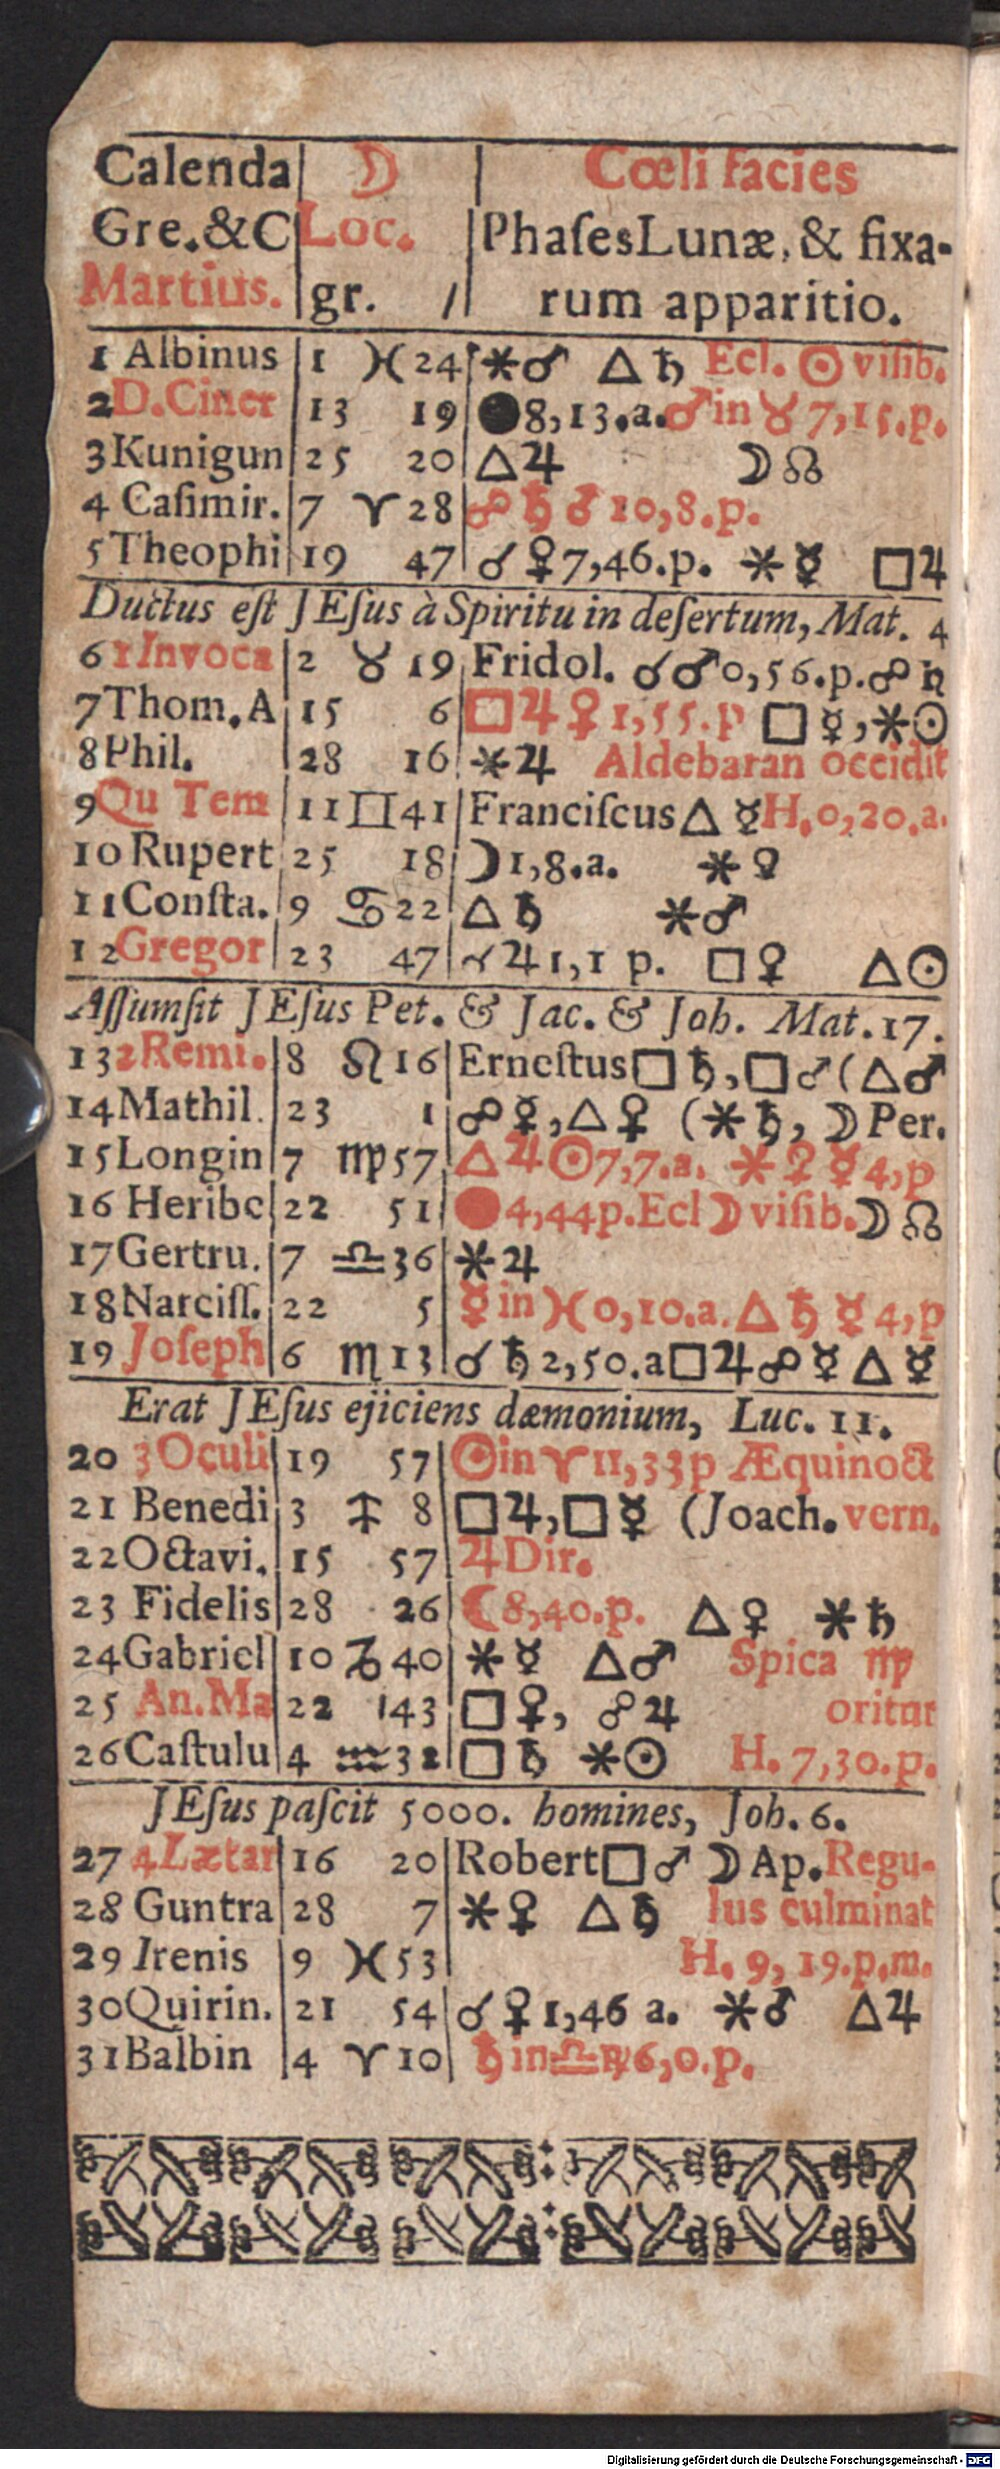 Calenda ☽ Cœli facies
Gre.&C Loc. Phaſes Lunæ, & fixa-
Martius. gr. / rum apparitio.
1 Albinus 1 ♓ 24 ⚹♂ △♄ Ecl. ☉ viſib.
2 D.Ciner 13 19 ●8,13.a. ♂ in ♉ 7,15.p.
3 Kunigun 25 20 △♃ ☽☊
4 Caſimir. 7 ♈ 28 ☍♄♂ 10,8.p.
5 Theophi 19 47 ☌♀7,46.p. ⚹☿ □♃
Ductus eſt JEſus à Spiritu in deſertum, Mat. 4
6 1Invoca 2 ♉ 19 Fridol. ☌♂0,56.p.☍♄
7 Thom.A 15 6 □♃♀1,55.p □☿,⚹☉
8 Phil. 28 16 ⚹♃ Aldebaran occidit
9 Qu Tem 11 ♊ 41 Franciſcus △☿ H.0,20.a.
10 Rupert 25 18 ☽1,8.a. ⚹♀
11 Conſta. 9 ♋ 22 △♄ ⚹♂
12 Gregor 23 47 ☌♃1,1 p. □♀ △☉
Aſſumſit JEſus Pet. & Jac. & Joh. Mat.17.
13 2Remi. 8 ♌ 16 Erneſtus □♄,□♂(△♂
14 Mathil. 23 1 ☍☿,△♀ (⚹♄,☽Per.
15 Longin 7 ♍ 57 △♃☉7,7.a. ⚹♀☿4,p
16 Heribc 22 51 ●4,44p.Ecl☽viſib.☽☊
17 Gertru. 7 ♎ 36 ⚹♃
18 Narciſſ. 22 5 ☿in♓0,10.a.△♄☿4,p
19 Joſeph 6 ♏ 13 ☌♄2,50.a□♃☍☿△☿
Erat JEſus ejiciens dæmonium, Luc. 11.
20 3Oculi 19 57 ☉in♈11,33p Æquinoct
21 Benedi 3 ♐ 8 □♃,□☿ (Joach. vern.
22 Octavi. 15 57 ♃Dir.
23 Fidelis 28 26 ☾8,40.p. △♀ ⚹♄
24 Gabriel 10 ♑ 40 ⚹☿ △♂ Spica ♍
25 An.Ma 22 43 □♀, ☍♃ oritur
26 Caſtulu 4 ♒ 32 □♄ ⚹☉ H. 7,30.p.
JEſus paſcit 5000. homines, Joh. 6.
27 4Lætar 16 20 Robert□♂☽Ap.Regu-
28 Guntra 28 7 ⚹♀ △♄ lus culminat
29 Irenis 9 ♓ 53 H. 9,19.p.m.
30 Quirin. 21 54 ☌♀1,46 a. ⚹♂ △♃
31 Balbin 4 ♈ 10 ♄in♎℞6,0.p.
Digitalisierung gefördert durch die Deutsche Forschungsgemeinschaft - DFG